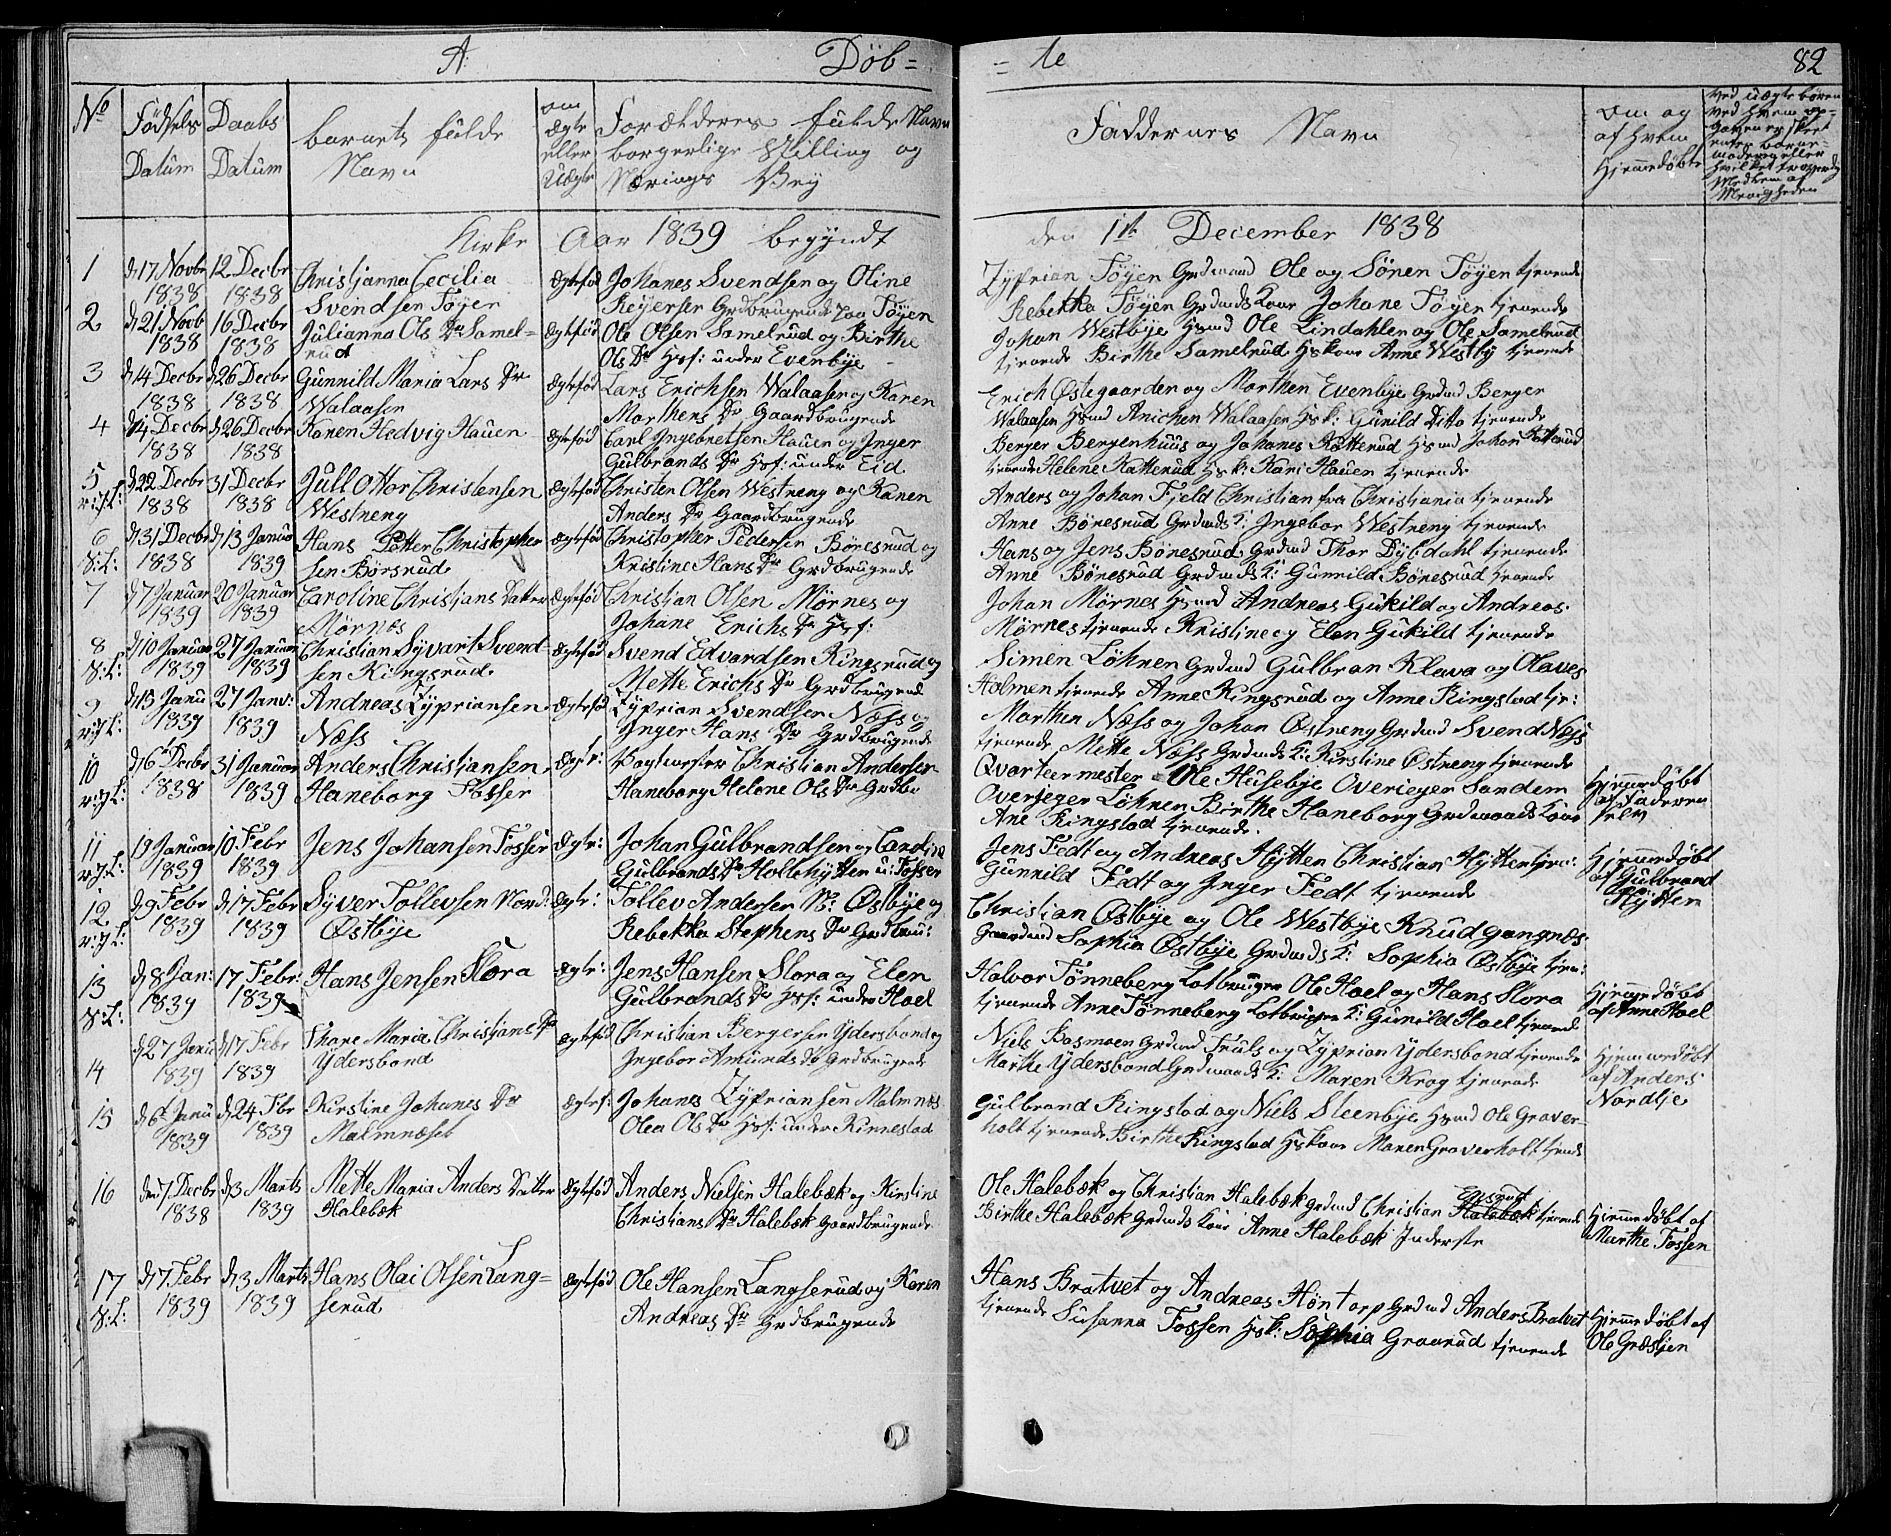 A. Döb=
=te 82
No
Födsels Datum
Daabs Datum
barnets fulde Navn
om ægte eller Uægte
Forældrenes fulde Navn borgerlige Stilling og Nærings Vey
Faddernes Navn
Om og af hvem Hjemmedöbt
Kirke Aar 1839 begyndt den 1te December 1838
1 d 17 Novbr 1838 12 Decbr 1838 Christjanna Cecilia Svendsen Töyen Ægtefød Johanes Svendsen og Oline Reyersen Grdbrugende paa Töyen
Zyprian Töyen Grdmand Ole og Sönen Töyen tjenende
Rebekka Töyen Grdmds Kone Johane Töyen tjenende
2 d 21 Novb 1838 16 Decbr 1838 Julianna Ols Dr Samelrud Ægtefød Ole Olsen Samelrud og Birthe Ols Dr Hsf: under Evenbye
Johan Westbye Hsmd Ole Lindahlen og Ole Samelrud
tjenende Birthe Samelrud Hskone Anne Westby tjenende
3 d 14 Decbr 1838 d 26 Decbr 1838 Gunnild Maria Lars Dr Walaasen Ægtefød Lars Erichsen Walaasen og Karen Marthens Dr Gaardbrugende
Erich Østegaarden og Marthen Evenbye Grdmd Berger
Walaasen Hsmd Anichen Walaasen Hsk: Gunild Ditto tjenende
4 d 14 Decbr 1838 d 26 Decbr 1838 Karen Hedvig Hauen Ægtefød Carl Ingebretsen Hauen og Inger Gulbrands Dr Hsf: under Eid
Berger Bergenhuus og Johanes Katterud Hsmd Johan Katterud
tjenende Helene Katterud Hsk: Kari Hauen tjenende
5 d 22 Decbr 1838 31 Decbr 1838 Jull Ottor Christensen Westneng Ægtefød Christen Olsen Westneng og Karen Anders Dr Gaardbrugende
Anders og Johan Fjeld Christian fra Christjania tjenende
Anne Bönesrud Grdmds K: Ingebor Westneng tjenende
6 S:L: d 31 Decbr 1838 d 13 Januar 1839 Hans Petter Christophersen Börsrud Ægtefød Christopher Pedersen Bönesrud og Kristine Hans Dr Grdbrugende
Hans og Jens Bönesrud Grdmd Thor Dybdahl tjenende
Anne Bönesrud Grdmds K: Gunnild Bönesrud tjenende
7 d 7 Januar 1839 20 Januar 1839 Caroline Christjans Datter Mörnes Ægtefød Christjan Olsen Mörnes og Johane Erichs Dr Hsf:
Johan Mörnes Hsmd Andreas Gukild og Andreas
Mörnes tjenende Kristine og Elen Gukild tjenende
8 S:L: d 10 Januar 1839 27 Januar 1839 Christian Syvart Svendsen Kingsrud Ægtefød Svend Edvardsen Kingsrud og Mette Erichs Dr Grdbrugende
Simen Löhnen Grdmd Gulbran Klava og Olaves
Holmen tjenende Anne Kingsrud og Anne Ringstad tje:
9 d 15 Janu 1839 27 Janv: 1839 Andreas Zypriansen Næss Ægtefød Zyprian Svendsen Næss og Inger Hans Dr Grdbrugende
Marthen Næss og Johan Østneng Grdmd Svend Næss
tjenende Mette Næss Grdmds K: Kirstine Østneng tjenende
10 d 6 Decbr 1838 31 Januar 1839 Anders Christjansen Haneborg Fosser Ægte: Vagtmester Christian Andersen Haneborg Helene Ols Dr Grdbr
Qvarteermester Ole Husebye Overieger Sandem
Overjeger Löhnen Birthe Haneborg Grdmands Kone
Ane Ringstad tjenende.
Hjemmedöbt af Faderen selv
11 19 Januar 1839 10 Febr 1839 Jens Johansen Fosser Ægte: Johan Gulbrandsen og Caroline Gulbrands Dr Hollehytten u: Fosser
Jens Fedt og Andreas Hytten Christian Hytten tjen:
Gunnild Fedt og Inger Fedt tjenende
Hjemmedöbt af Gulbrand Hytten
12 d 9 Febr 1839 d 17 Febr 1839 Syver Tollevsen Nord: Østbye Ægte: Tollev Andersen N: Østbye og Rebekka Stephens Dr Grdbru:
Christian Østbye og Ole Westbye Knud Gangnæs
Gaardmd Sophia Østbye Grdmds K: Sophia Østbye tjen:
13 S:L: d 8 Jan: 1839 17 Febr: 1839 Hans Jensen Slora Ægte: Jens Hansen Slora og Elen Gulbrands Dr Hsf: under Hoel
Halvor Tönneberg Lotbruger Ole Hoel og Hans Slora
tjenende Anne Tönneberg Lotbruger K: Gunild Hoel tjenende
Hjemmedöbt af Anne Hoel
14 d 27 Janu 1839 d 17 Febr 1839 Thore Maria Christjans Dr Ydersbond Ægtefød Christian Bergersen Ydersbond og Ingebor Amunds Dr Grdbrugende
Niels Basmoen Grdmd Truls og Zyprian Ydersbond tjenende
Marthe Ydersbond Grdmands K: Maren Krog tjenende
Hjemmedöbt af Anders Nordbje
15 d 6te Janu 1839 d 24 Fbr 1839 Kirstine Johanes Dr Malmnæset Ægtef: Johanes Zypriansen Malmnæs Olea Ols Dr Hsf: under Kinnestad
Gulbrand Ringstad og Niels Steenbye Hsmd Ole Graverholt tjenende Birthe Ringstad Hskone Maren Graverholt tjende
16 den 7 Decbr 1838 d 3 Marts 1839 Mette Maria Anders Datter Halebæk Ægtefød Anders Nielsen Halebæk og Kirstine Christjans Dr Halebæk Gaardbrugende
Ole Halebæk og Christian Halebæk Grdmd Christian Halebæk tjenende
Birthe Halebæk Grdmds Kone Anne Halebæk Inderste
Hjemmedöbt af Marthe Fossen
17 S:L: d 7 Febr 1839 d 3 Marts 1839 Hans Olai Olsen Langserud Ægtefød Ole Hansen Langserud og Karen Andreas Dr Grdbrugende
Hans Bratvet og Andreas Höntorp Grdmd Anders Bratvet
tjenende Susanna Fossen Hsk: Sophia Graarud tjenende
Hjemmedöbt af Ole Græsljen